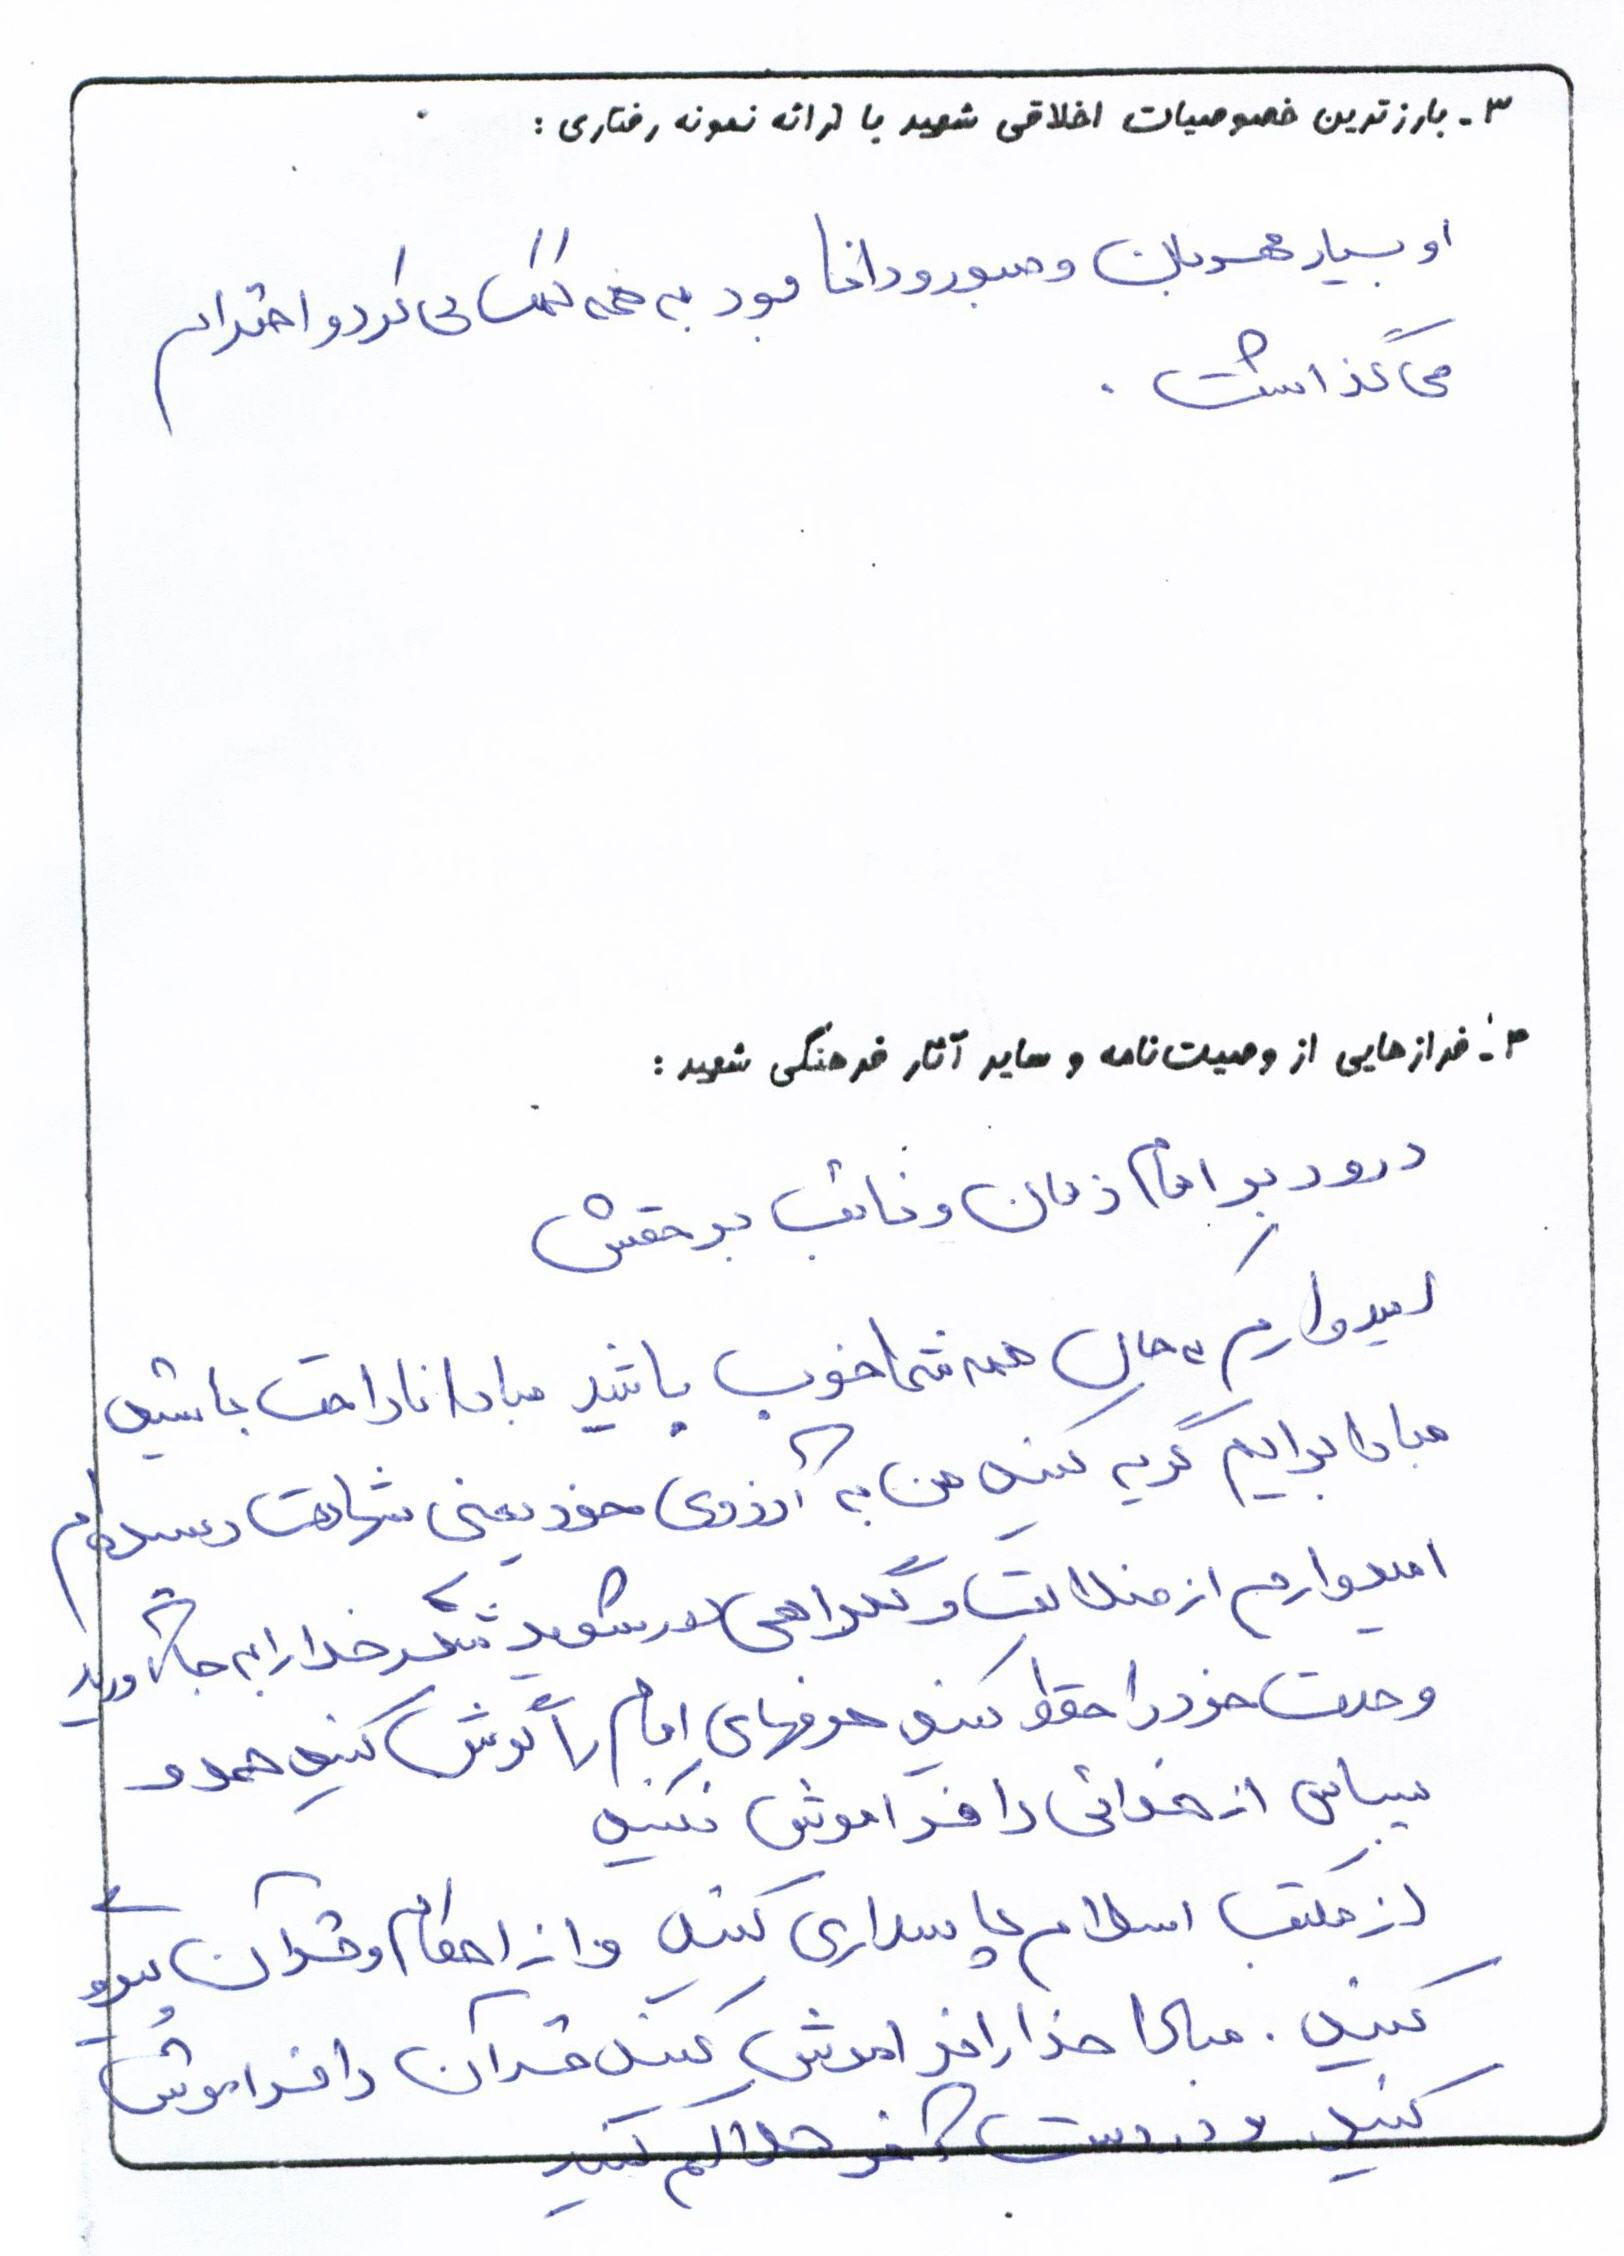 ۳- بارزترین خصوصیات اخلاقی شهید با ارائه نمونه رفتاری :
او بسیار مهربان و صبور و دانا بود به همه کمک می کرد و احترام
می گذاشت .
۴- فرازهایی از وصیت‌نامه و سایر آثار فرهنگی شهید :
درود بر امام زمان و نائب بر حقش
امیدوارم حال همه شما خوب باشید مبادا ناراحت باشید
مبادا برایم گریه کنید من به آرزوی خود یعنی شهادت رسیده‌ام
امیدوارم از ضلالت و گمراهی دور شوید شکر خدا را به جا آورید
وحدت خود را حفظ کنید حرفهای امام را گوش کنید حمد و
سپاس از خدائی را فراموش نکنید
از مکتب اسلام پاسداری کنید و از احکام و قرآن پیروی
کنید . مبادا خدا را فراموش کنید قرآن را فراموش
کنید. و در دست آخر حلالم کنید